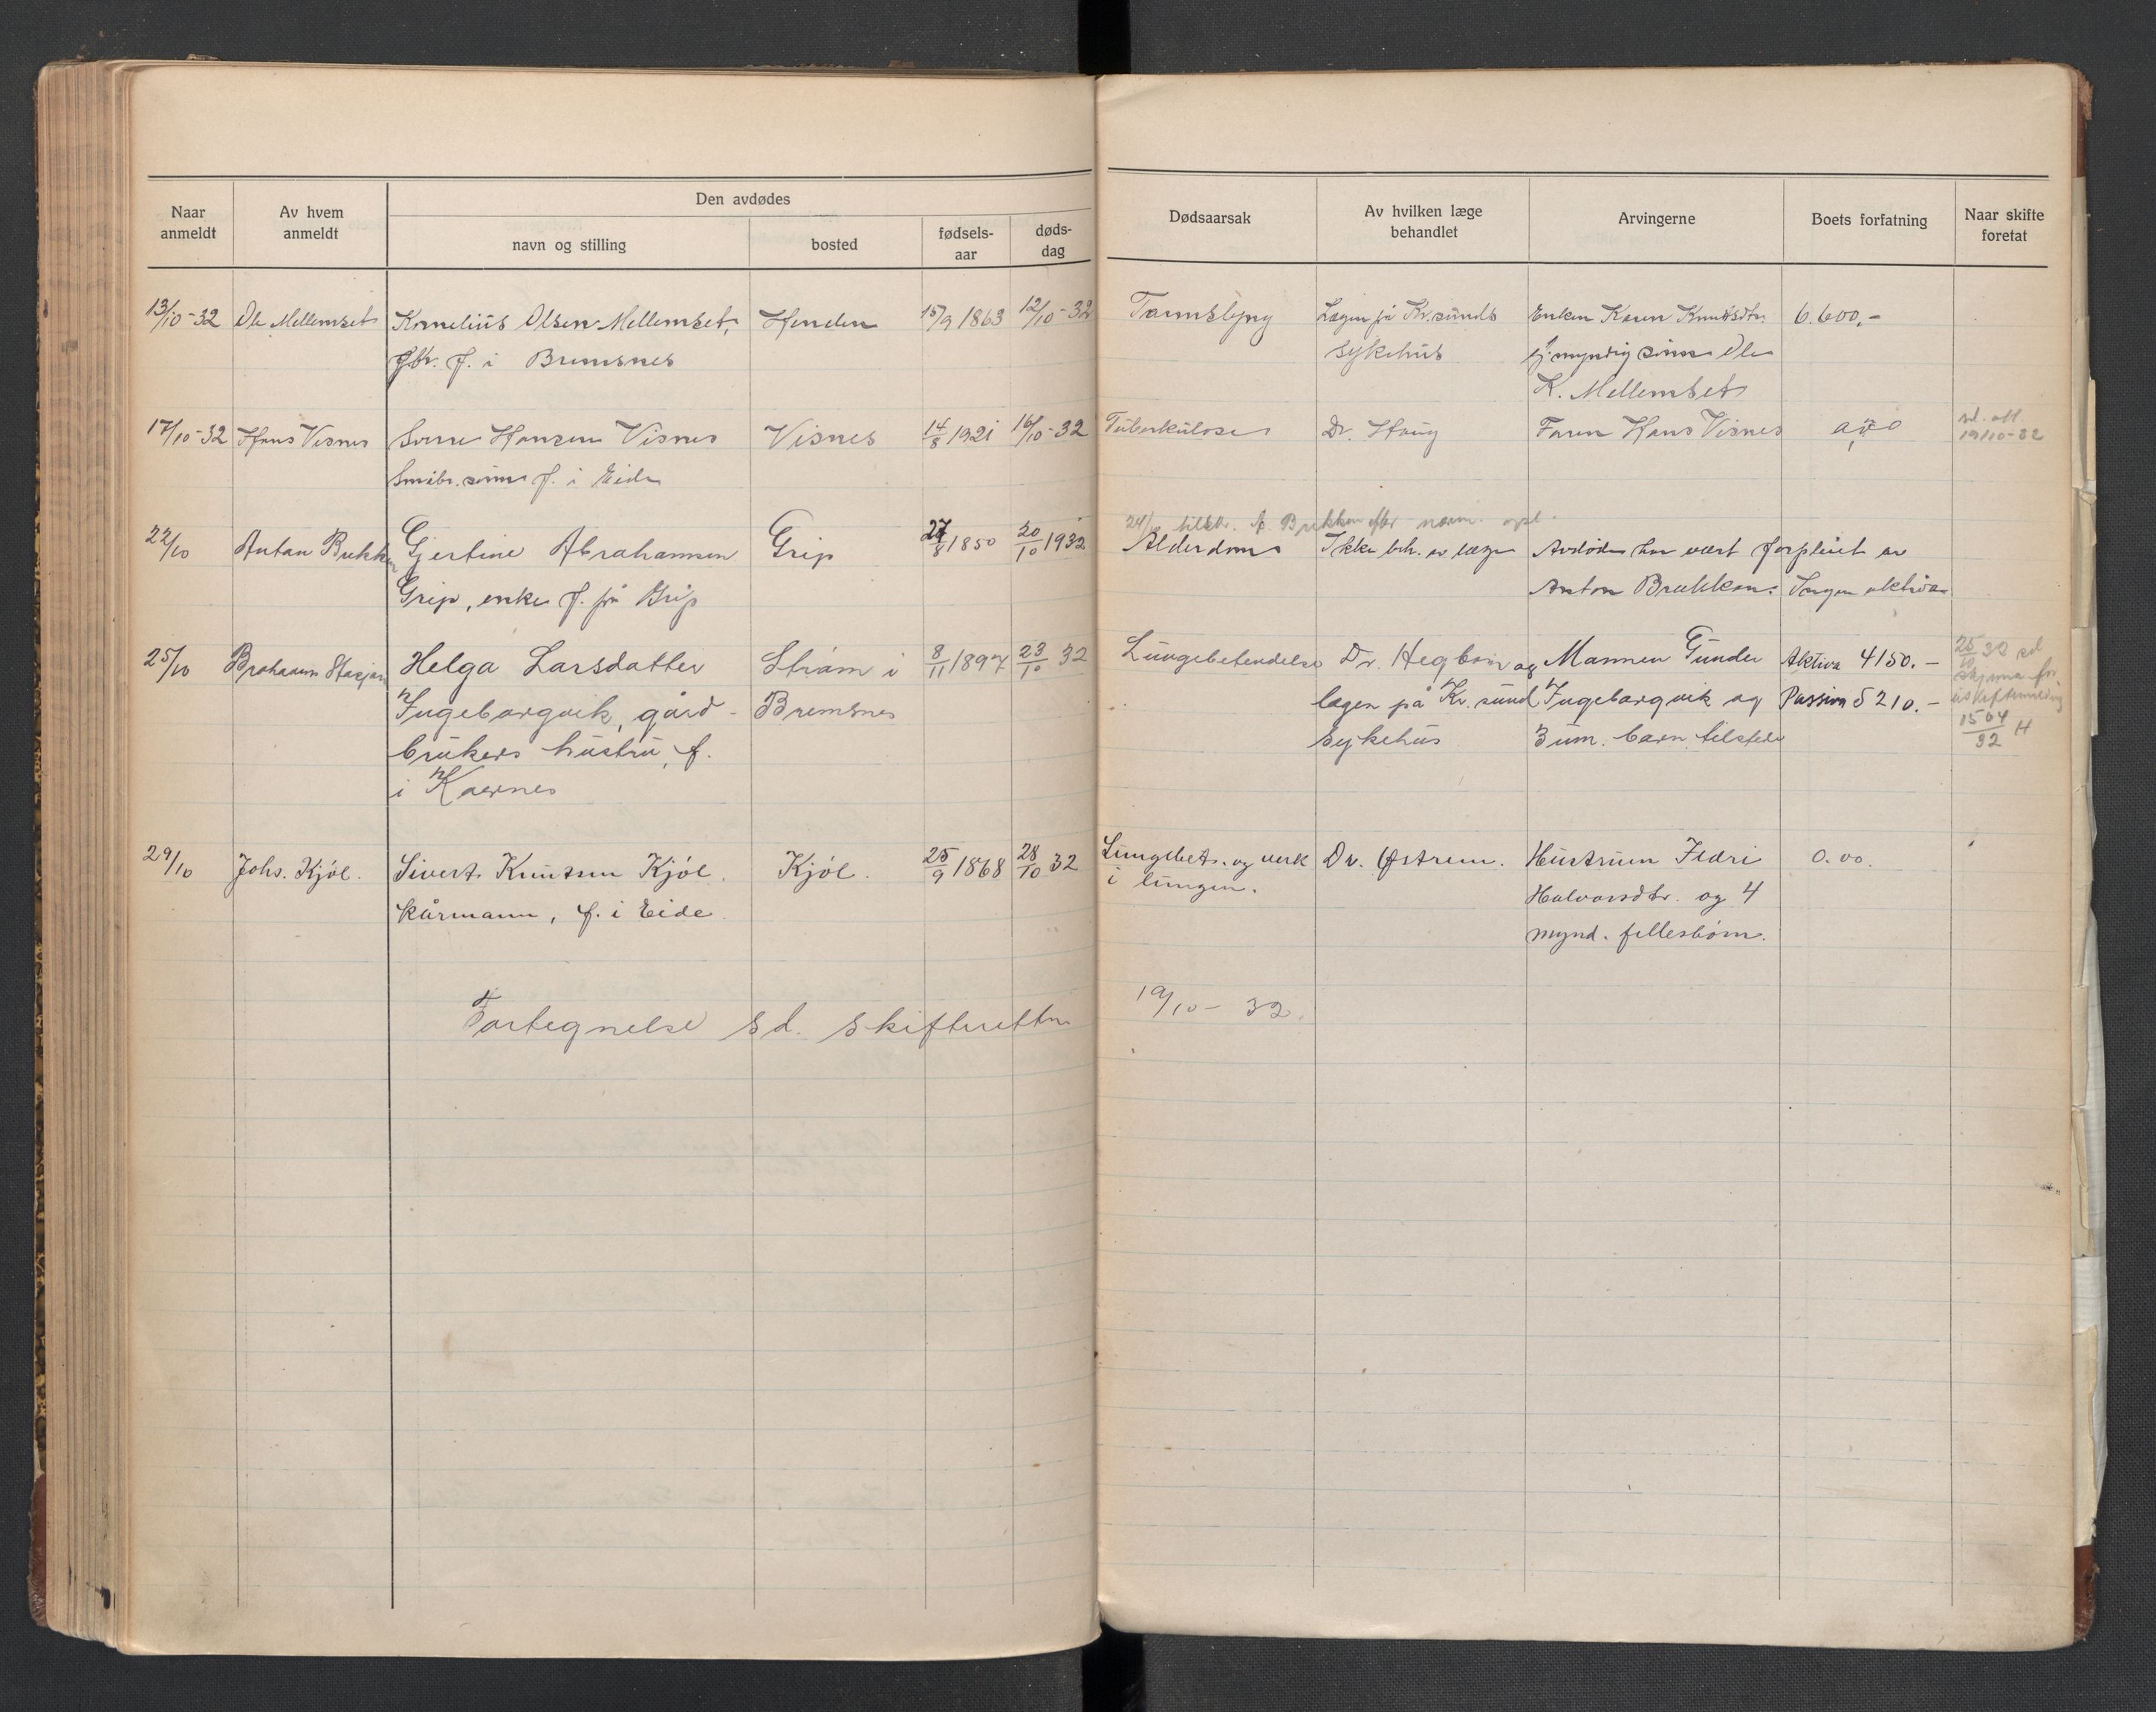 Naar anmeldt
Av hvem anmeldt
Den avdødes
navn og stilling
bosted
fødsels-aar
døds-dag
Dødsaarsak
Av hvilken læge behandlet
Arvingerne
Boets forfatning
Naar skifte foretat
13/10-32 Ole Mellemset Kornelius Olsen Mellemset, Henden 15/9 1863 12/10-32 Tarmslyng Lægen på Kr.sunds Enken Karen Knutsdtr. 6.600,-
gbr. f. i Bremsnes sykehus myndig sønn Ole
K. Mellemset
17/10-32 Hans Visnes Hansen Visnes Visnes 14/8 1921 16/10-32 Tuberkulose Dr. Haug Faren Hans Visnes
Småbr. sønn f. i Eide 19/10-32
22/10 Anton Brekken Gjertine Abrahamsen Grip 27/8 1850 20/10 1932 Alderdom Ikke beh. av læge Avdøde har vært forpleiet av
Grip, enke f. på Grip Anton Brekken. Ingen aktiva
25/10 Helga Larsdatter Strøm i 8/11 1897 23/10 32 Lungebetendelse Dr. Hegbom og Mannen Gunder Aktiva 4150.- 25/10 32 sd
Ingeborgvik, gård- Bremsnes lægen på Kr. sund Ingeborgvik og Passiva 5210.- skjema for
brukers hustru, f. sykehus 3 um. barn tilstede uskiftemelding
i Kvernes 1564/32 H
29/10 Johs. Kjøl. Sivert Knutsen Kjøl. Kjøl. 25/9 1868 28/10 32 Lungebet. og verk Dr. Østrem. Hustruen Ildri 0.00.
kårmann, f. i Eide. i lungen. Halvorsdtr. og 4
mynd. fellesbørn.
Fortegnelse sd. skifteretten 19/10-32.